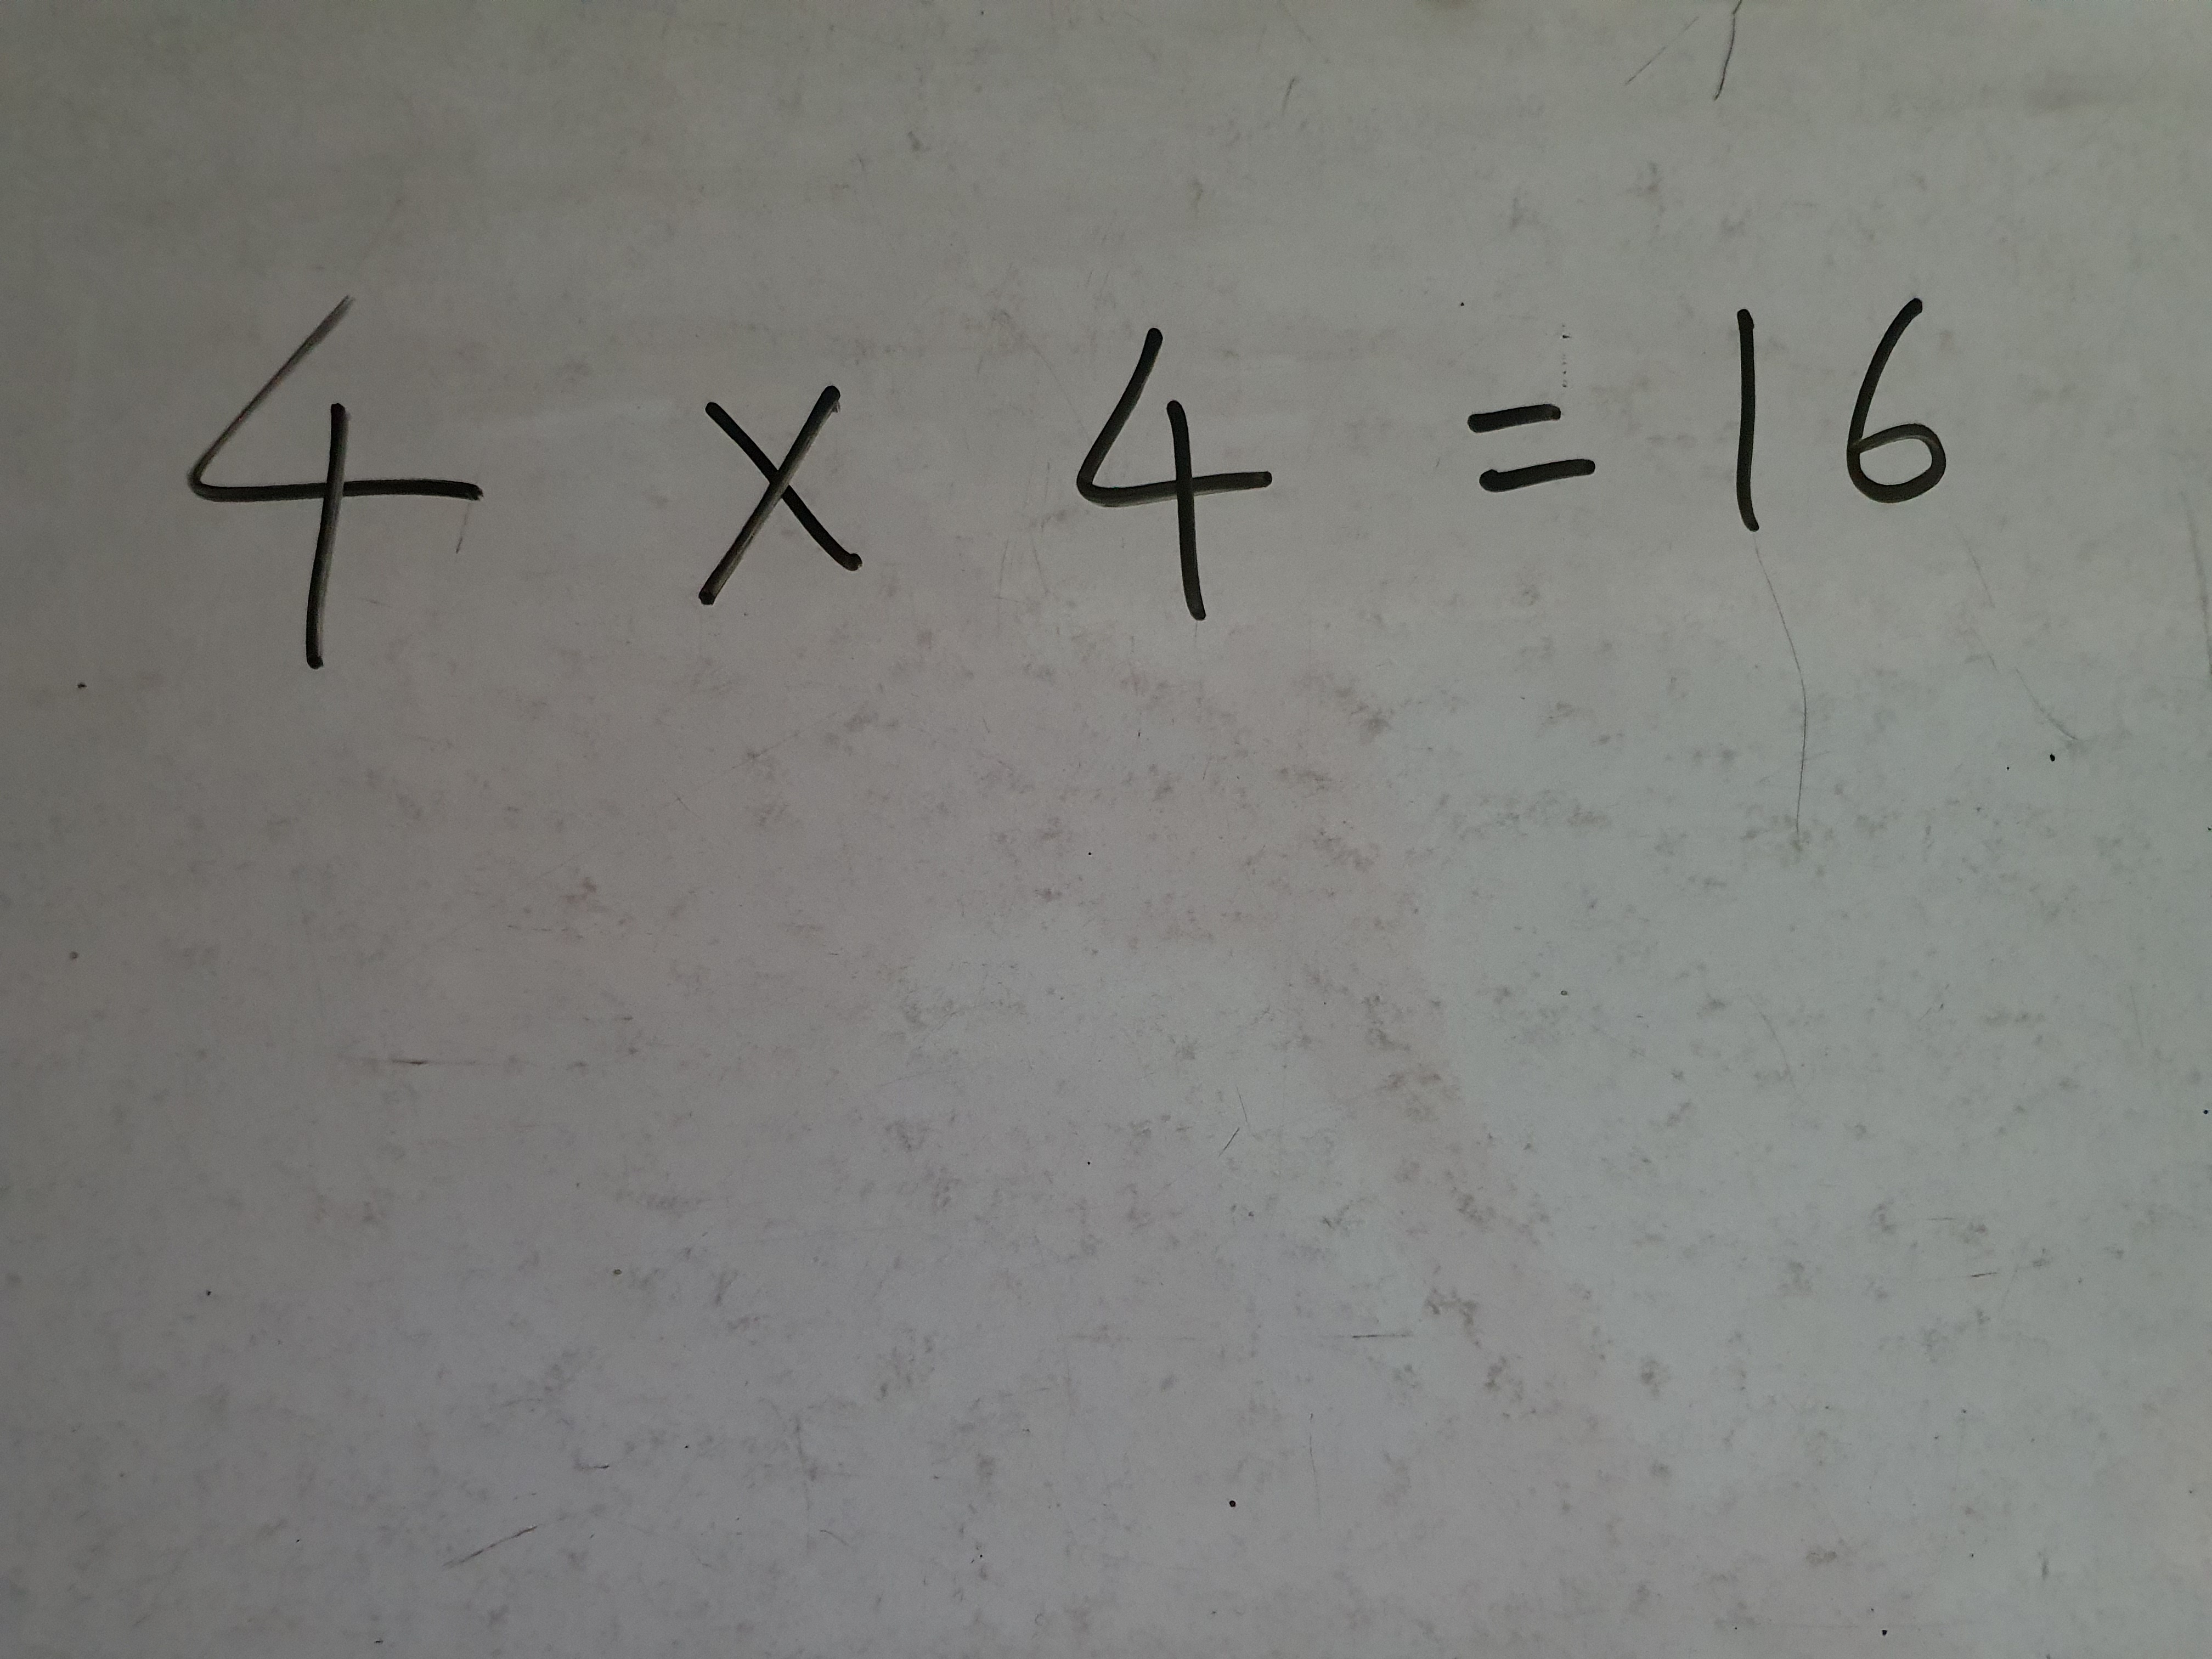 4 x 4 = 16